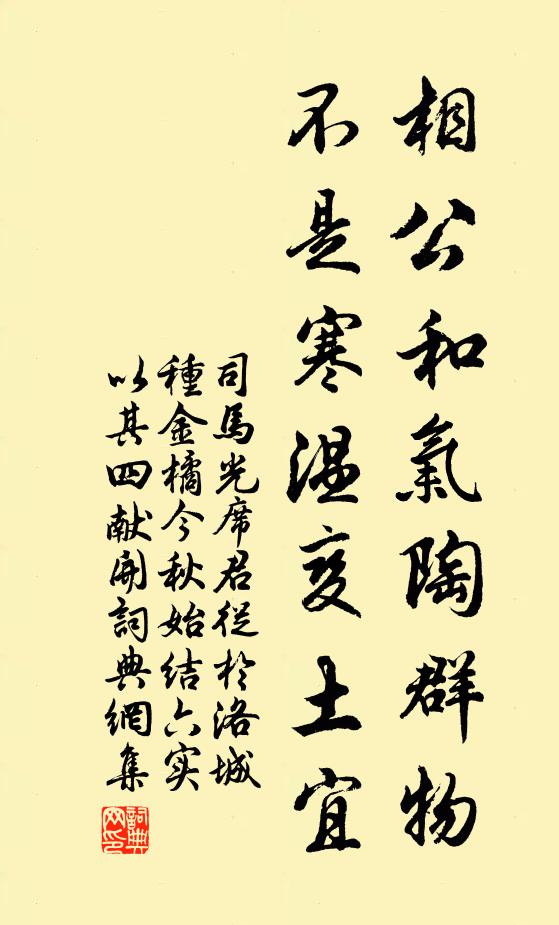 相公和氣陶群物
不是寒温变土宜
司馬光席君從於洛城
種金橘今秋始結六实
以其四献開詞典網集
詞典網印